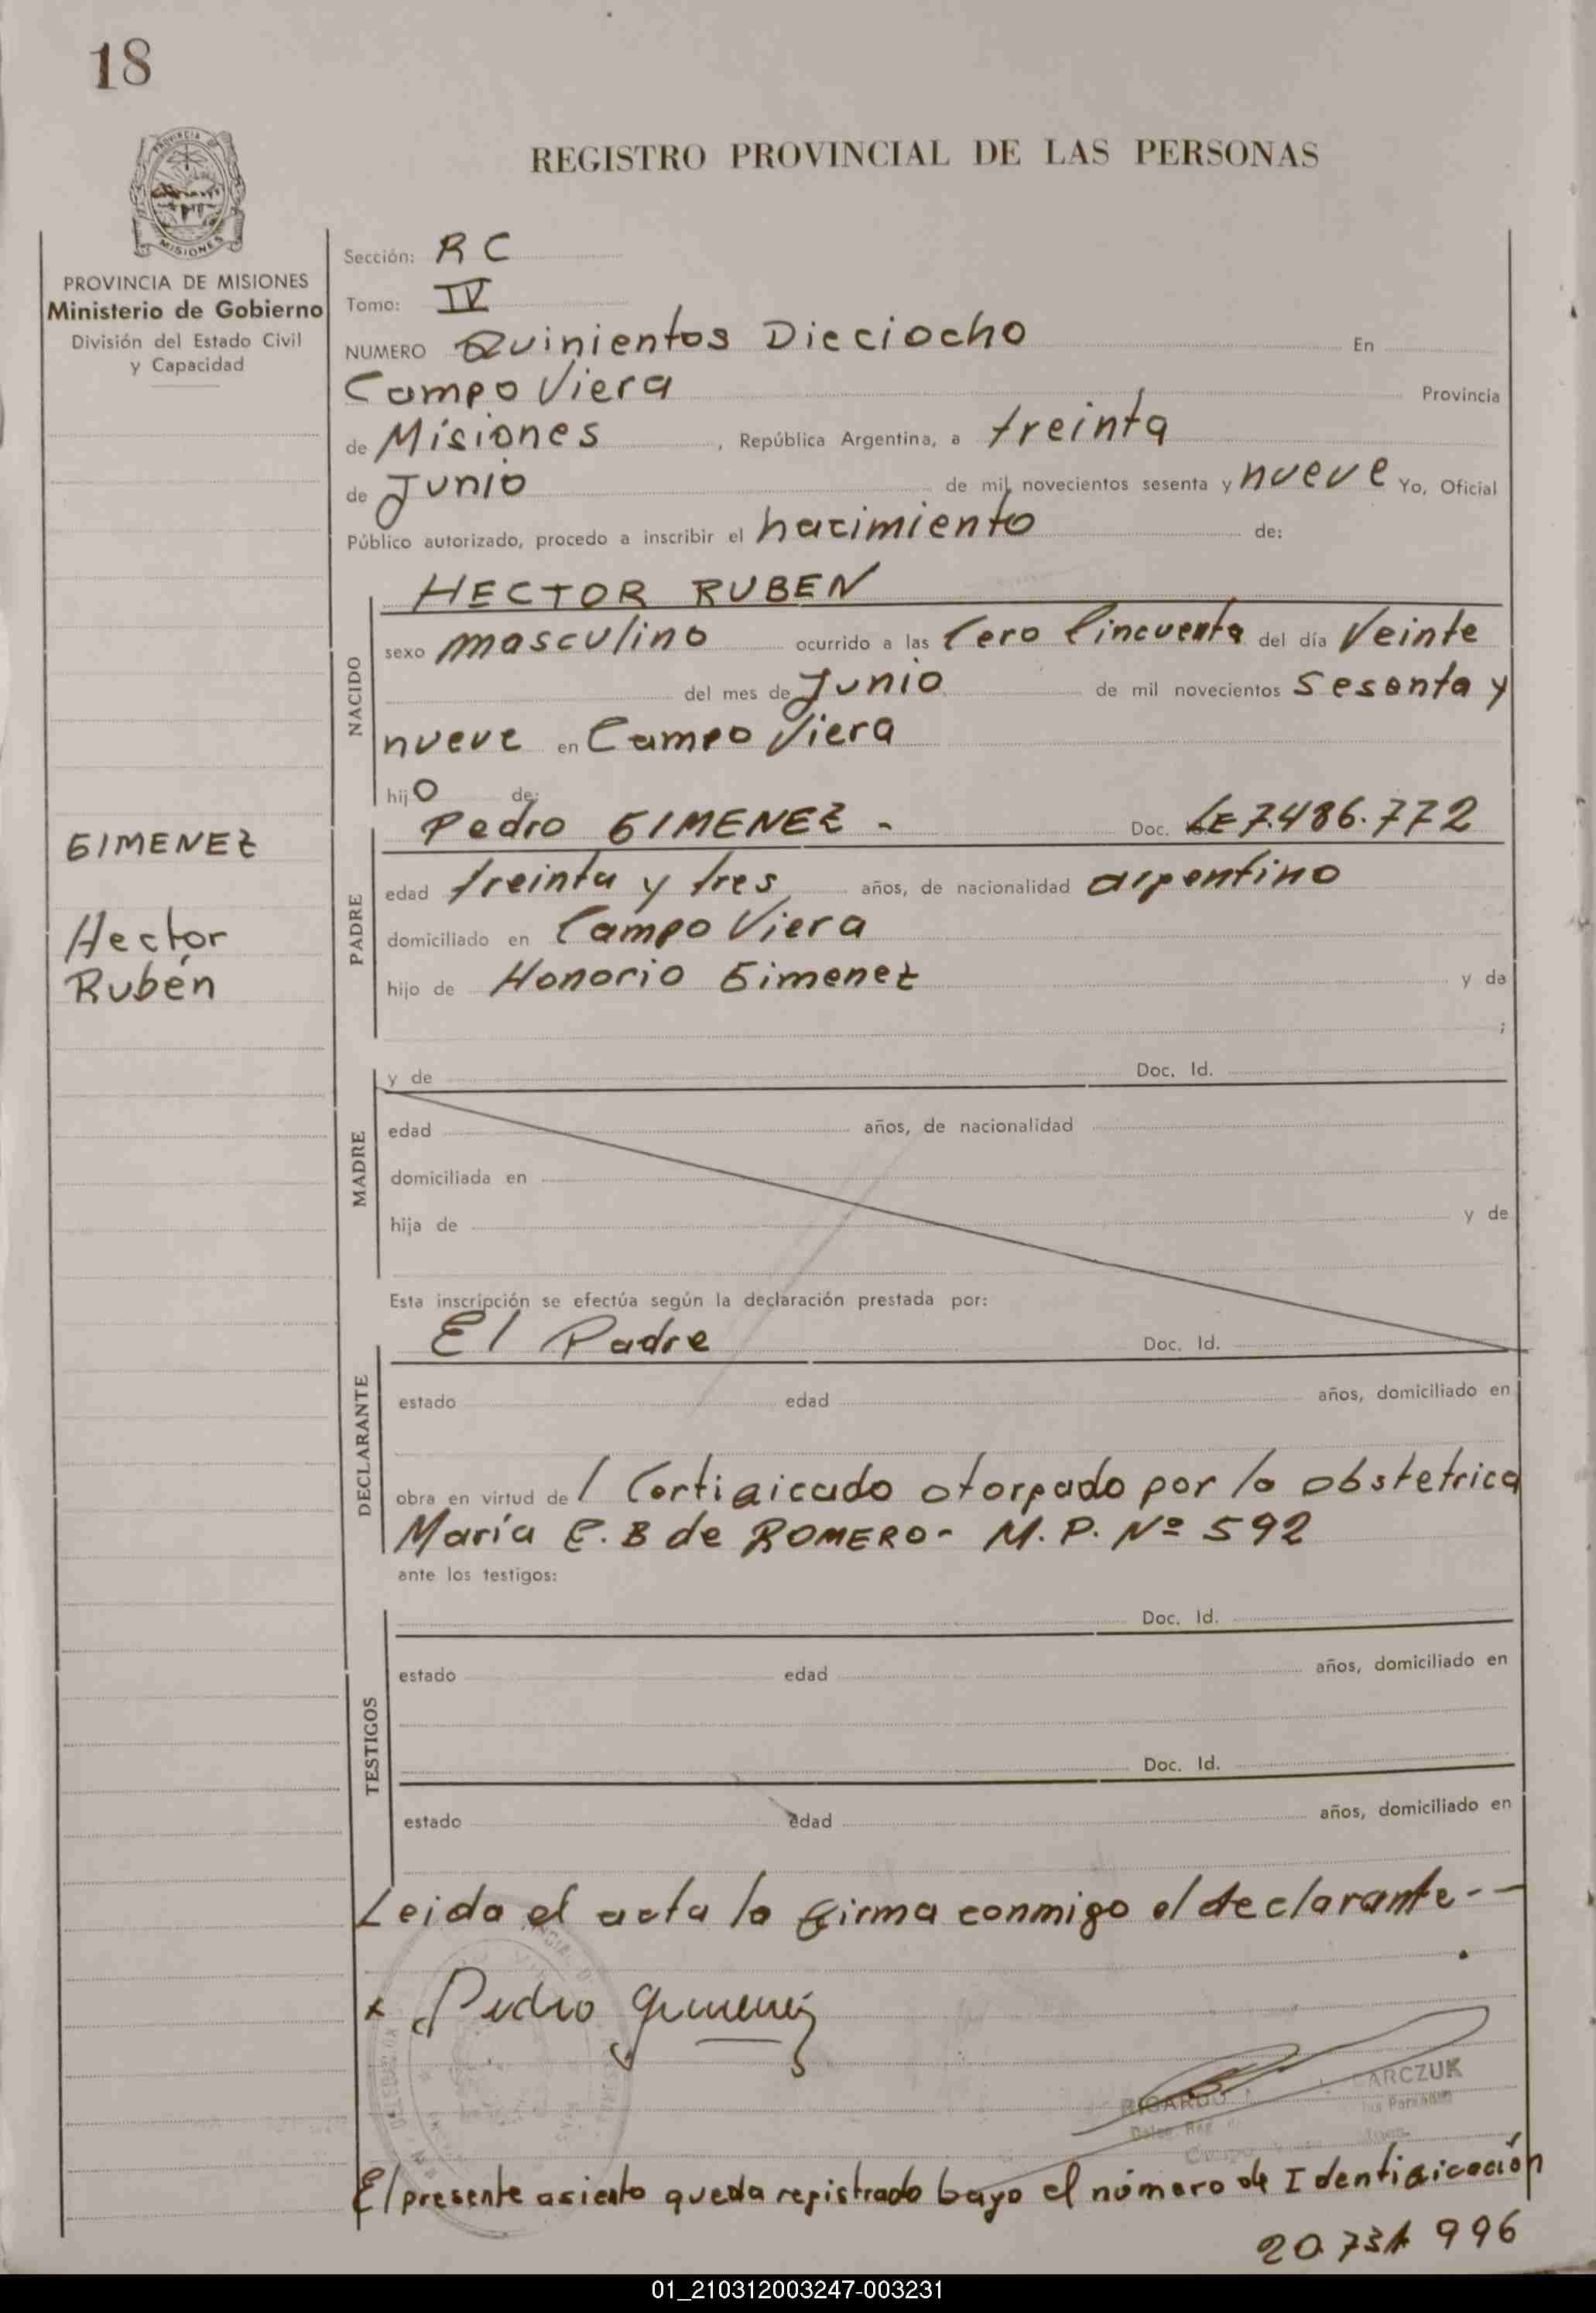 18
REGISTRO PROVINCIAL DE LAS PERSONAS
PROVINCIA DE MISIONES
Ministerio de Gobierno
División del Estado Civil
y Capacidad
Sección: R C
Tomo: IV
NUMERO Quinientos Dieciocho En
Campo Viera Provincia
de Misiones, República Argentina, a treinta
de Junio de mil novecientos sesenta y nueve Yo, Oficial
Público autorizado, procedo a inscribir el nacimiento de:
HECTOR RUBEN
NACIDO
sexo masculino ocurrido a las Cero Cincuenta del día Veinte
del mes de Junio de mil novecientos Sesenta y
nueve en Campo Viera
hijo de:
GIMENEZ
Hector
Rubén
Pedro GIMENEZ - Doc. LE 7.486.772
PADRE
edad treinta y tres años, de nacionalidad argentino
domiciliado en Campo Viera
hijo de Honorio Gimenez y de
;
MADRE
y de Doc. Id.
edad años, de nacionalidad
domiciliada en
hija de y de
Esta inscripción se efectúa según la declaración prestada por:
El Padre Doc. Id.
DECLARANTE
estado edad años, domiciliado en
obra en virtud de l Certificado otorgado por la obstetrica
María E. B de ROMERO- M. P. Nº 592
ante los testigos:
TESTIGOS
Doc. Id.
estado edad años, domiciliado en
Doc. Id.
estado edad años, domiciliado en
Leida el acta la firma conmigo el declarante--
x Pedro Gimenez
RICARDO ARCZUK
El presente asiento queda registrado bayo el número de Identificación
20.731 996
01_210312003247-003231